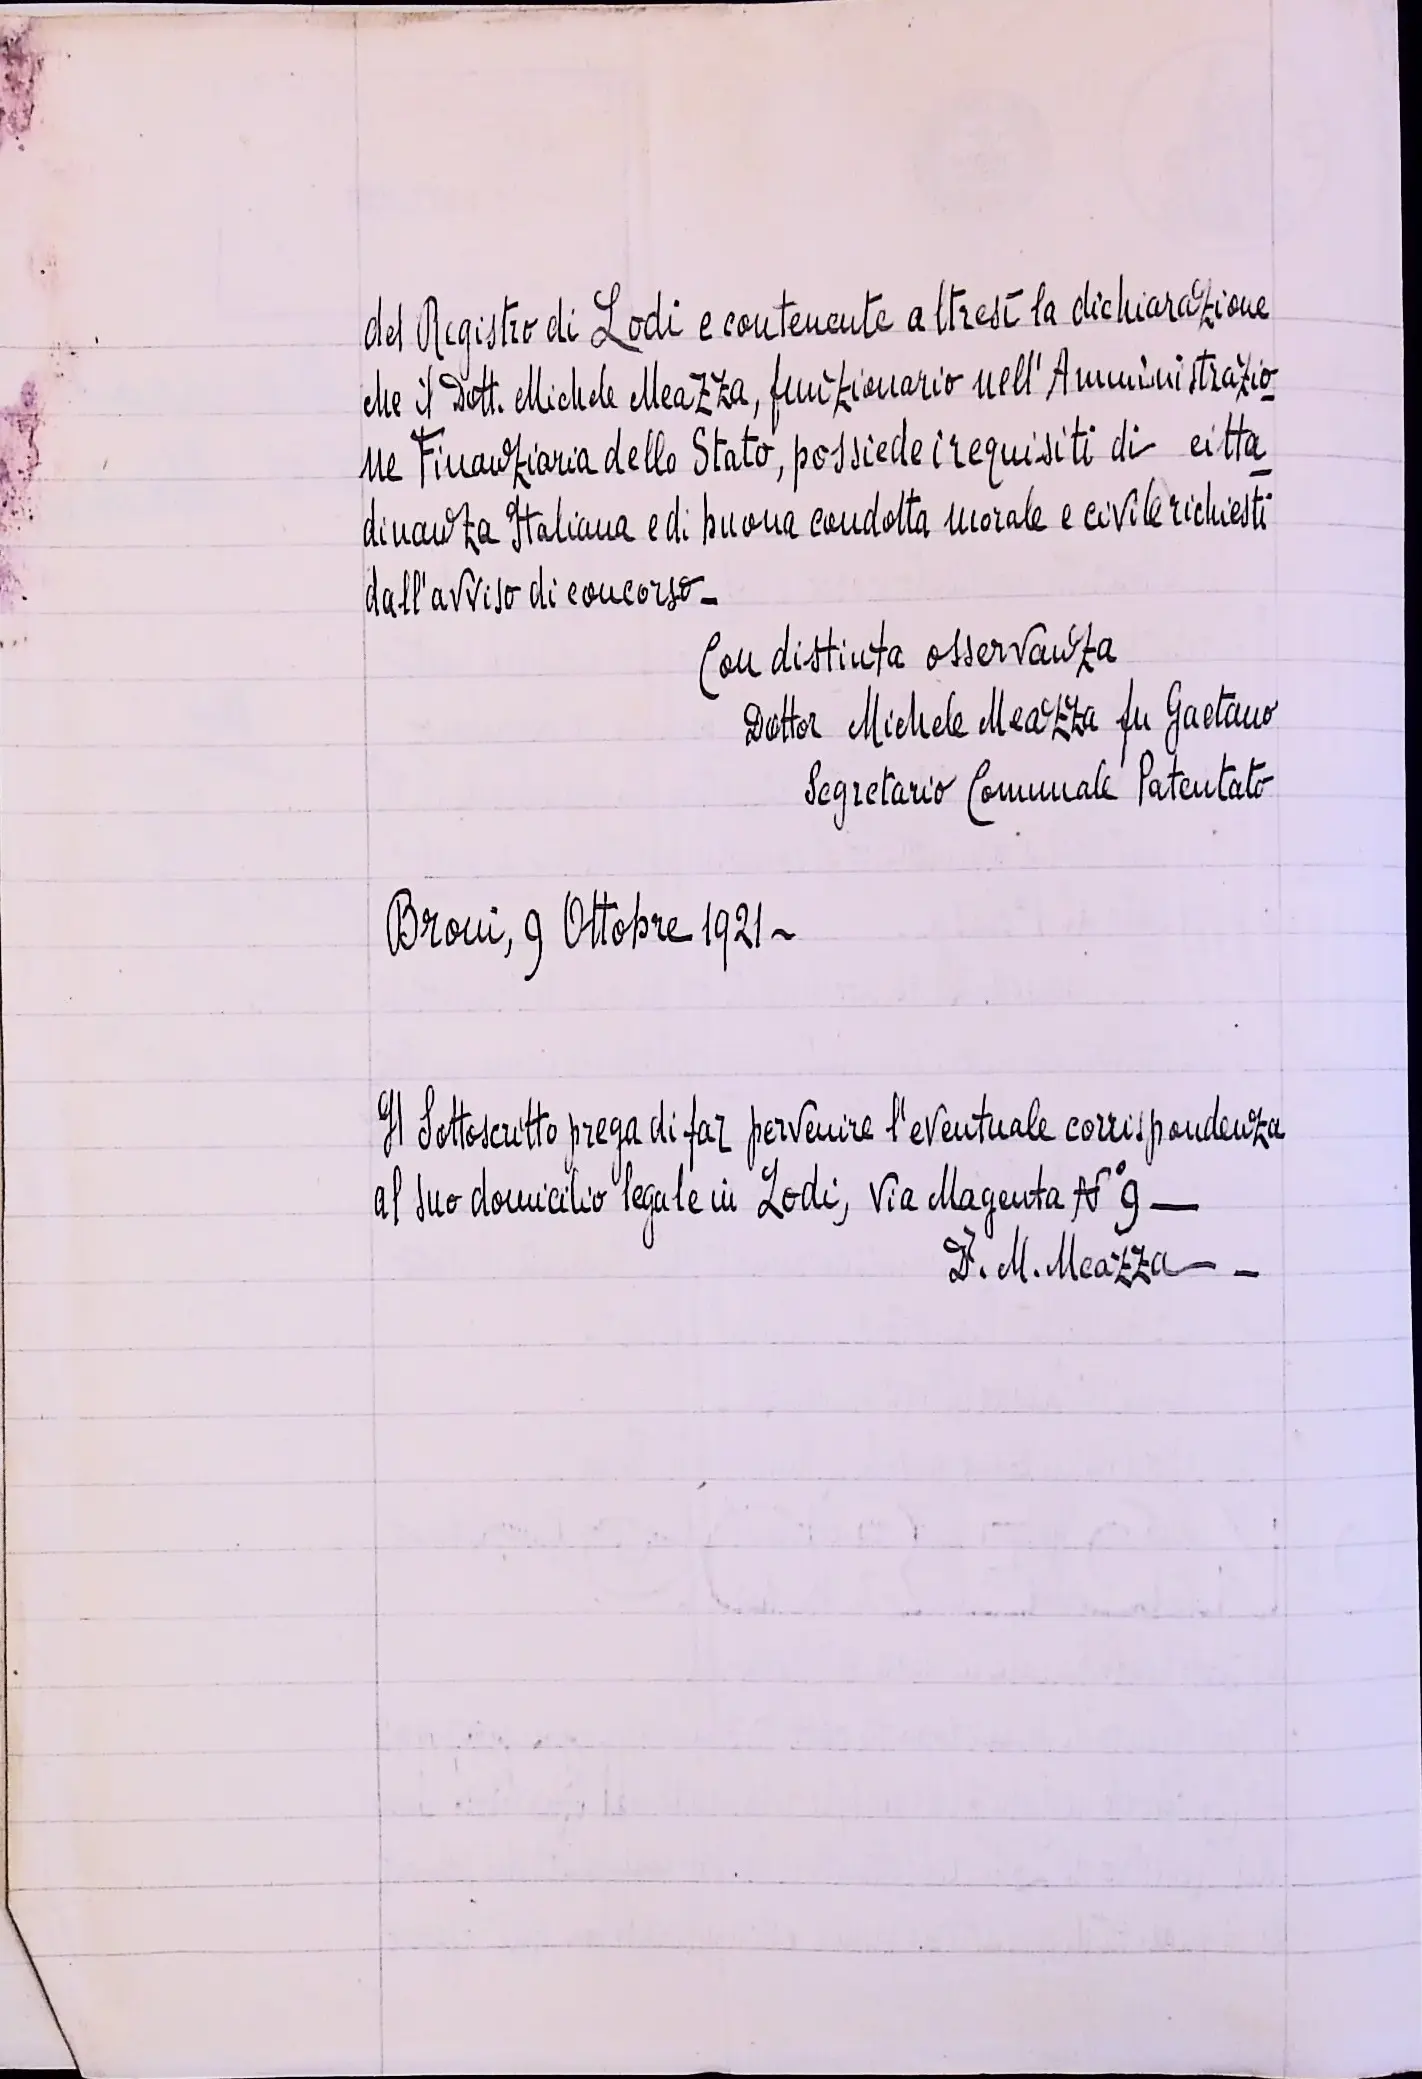 del Registro di Lodi e contenente altresì la dichiarazione
che il Dott. Michele Meazza, funzionario nell'Amministrazio-
ne Finanziaria dello Stato, possiede i requisiti di citta-
dinanza Italiana e di buona condotta morale e civile richiesti
dall'avviso di concorso_
Con distinta osservanza
Dottor Michele Meazza fu Gaetano
Segretario Comunale Patentato
Broni, 9 Ottobre 1921~
Il Sottoscritto prega di far pervenire l'eventuale corrispondenza
al suo domicilio legale in Lodi, Via Magenta N° 9 —
Dr. M. Meazza — –